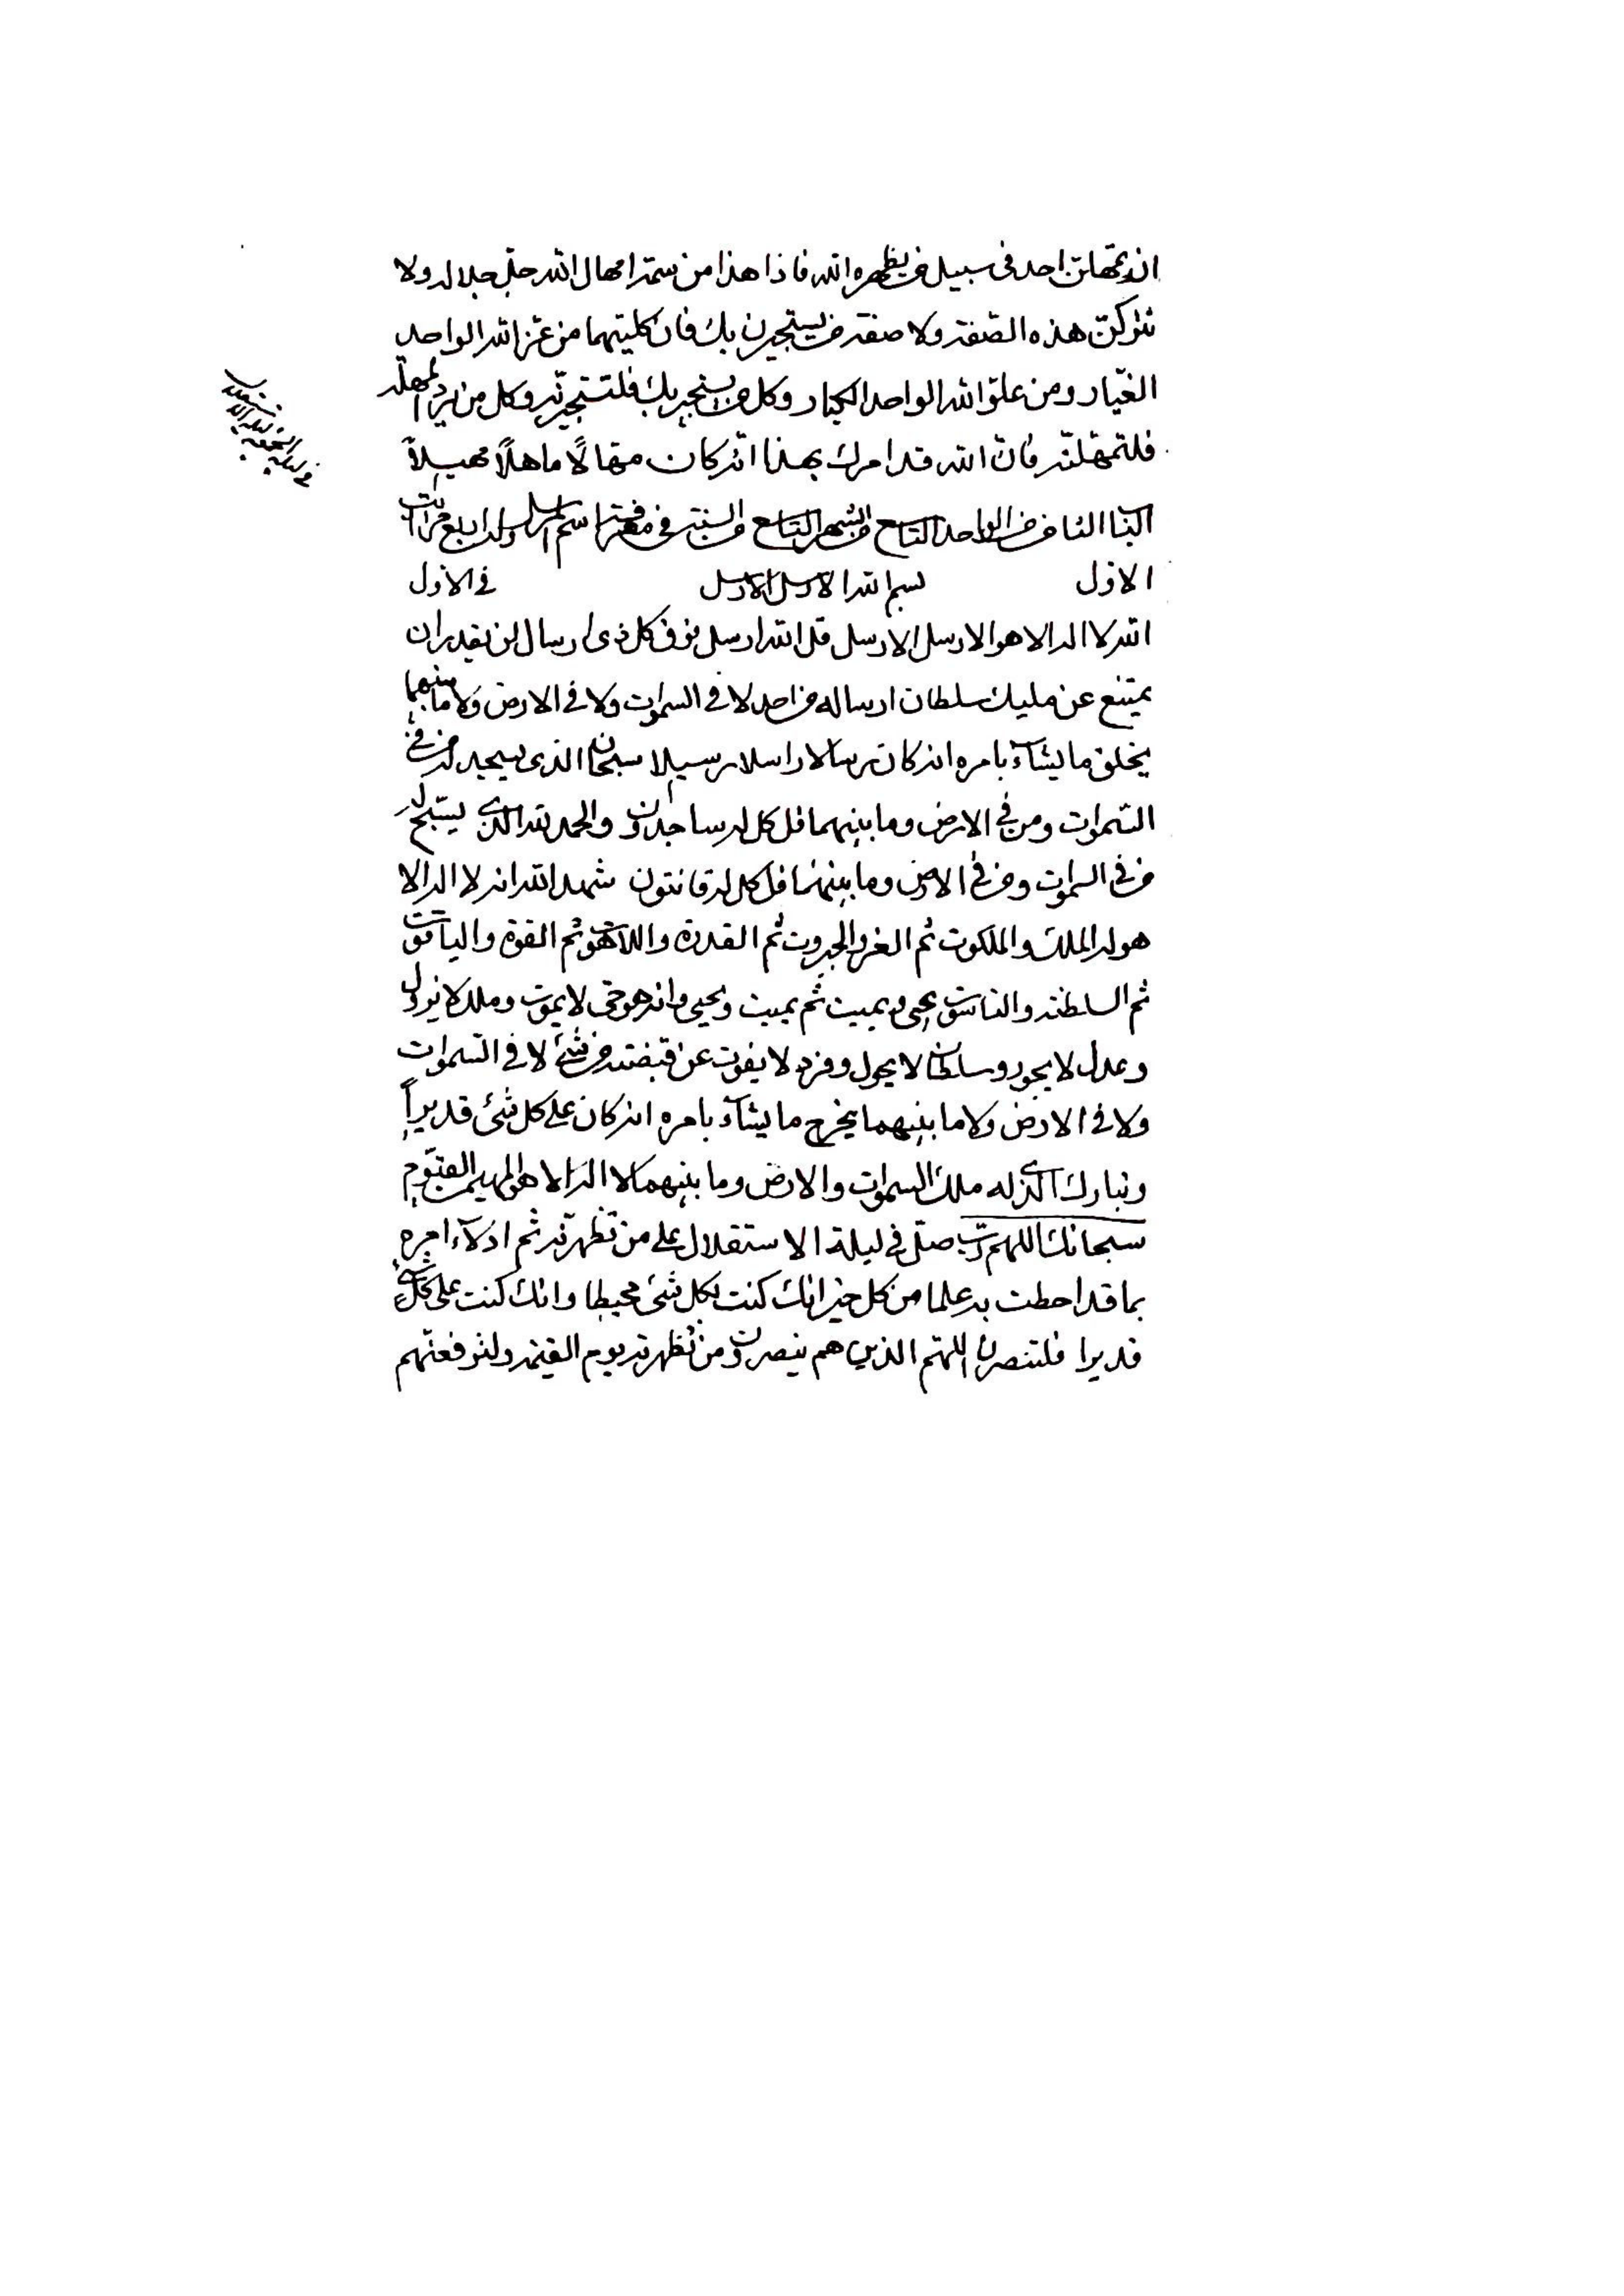 ان يمهلن احد فى سبيل من يظهره الله فاذا هذا من سمة امهال الله جل جلاله ولا
تتركن هذه الصفة ولا صفة من يستجيرن بك فان كلتيهما من عز الله الواحد
الغيار ومن علو الله الواحد الكبار وكل من يستجير بك فلتستجيرنه وكل من يرد
فلتمهلنه فان الله قد امرك بهذا انه كان مهالًا ماهلًا مهيلًا
الباب الثانى من الواحد التاسع من الشهر التاسع من السنة فى معرفة اسم المرسل وله اربع مراتب
الاول بسم الله الارسل الارسل فى الاول
الله لا اله الا هو الارسل الارسل قل الله ارسل فوق كل ذى ارسال لن يقدر ان
يمتنع عن مليك سلطان ارساله من احد لا فى السموات ولا فى الارض ولا ما بينهما
يخلق ما يشآء بامره انه كان رسالا راسلا رسيلا سبحان الذى يسجد له من فى
السموات ومن فى الارض وما بينهما قل كل له ساجدون والحمد لله الذى يسبح له
من فى السموات ومن فى الارض وما بينهما قل كل له قانتون شهد الله انه لا اله الا
هو له الملك والملكوت ثم العز والجبروت ثم القدرة واللاهوت ثم القوة والياقوت
ثم السلطنة والناسوت يحيى ويميت ثم يميت ويحيى وانه هو حى لا يموت وملك لا يزول
وعدل لا يجور وسلطان لا يحول وفرد لا يفوت عن قبضته من شئ لا فى السموات
ولا فى الارض ولا ما بينهما يخرج ما يشآء بامره انه كان على كل شئ قديرًا
وتبارك الذى له ملك السموات والارض وما بينهما لا اله الا هو المهيمن القيوم
سبحانك اللهم رب صل فى ليلة الاستقلال على من تظهرنه ثم ادلآء امره
بما قد احطت به علما من كل خير انك كنت بكل شئ محيطا وانك كنت على كل شئ
قديرا فلتنصرن اللهم الذين هم ينصرون من تظهرنه يوم القيمة ولترفعنهم